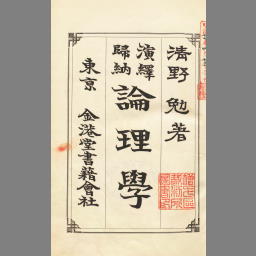 清野勉著
演繹
歸納
論理學
東京 金港堂書籍會社